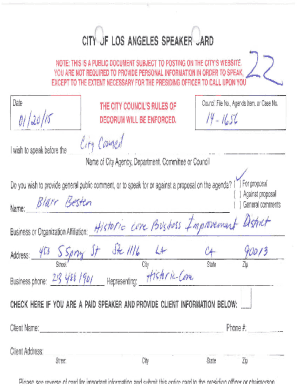 CITY OF LOS ANGELES SPEAKER CARD
NOTE: THIS IS A PUBLIC DOCUMENT SUBJECT TO POSTING ON THE CITY'S WEBSITE.
YOU ARE NOT REQUIRED TO PROVIDE PERSONAL INFORMATION IN ORDER TO SPEAK,
EXCEPT TO THE EXTENT NECESSARY FOR THE PRESIDING OFFICER TO CALL UPON YOU
22
Date
01/20/15
THE CITY COUNCIL'S RULES OF
DECORUM WILL BE ENFORCED.
Council File No., Agenda Item, or Case No.
14-1656
I wish to speak before the City Council
Name of City Agency, Department, Committee or Council
Do you wish to provide general public comment, or to speak for or against a proposal on the agenda? ( ) For proposal
( ) Against proposal
Name: Blair Besten ( ) General comments
Business or Organization Affiliation: Historic Core Business Improvement District
Address: 453 S Spring St Ste 1116 LA CA 90013
Street City State Zip
Business phone: 213 488 1901 Representing: Historic Core
CHECK HERE IF YOU ARE A PAID SPEAKER AND PROVIDE CLIENT INFORMATION BELOW:
Client Name: Phone #:
Client Address:
Street City State Zip
Please see reverse of card for important information and submit this entire card to the presiding officer or chairperson.